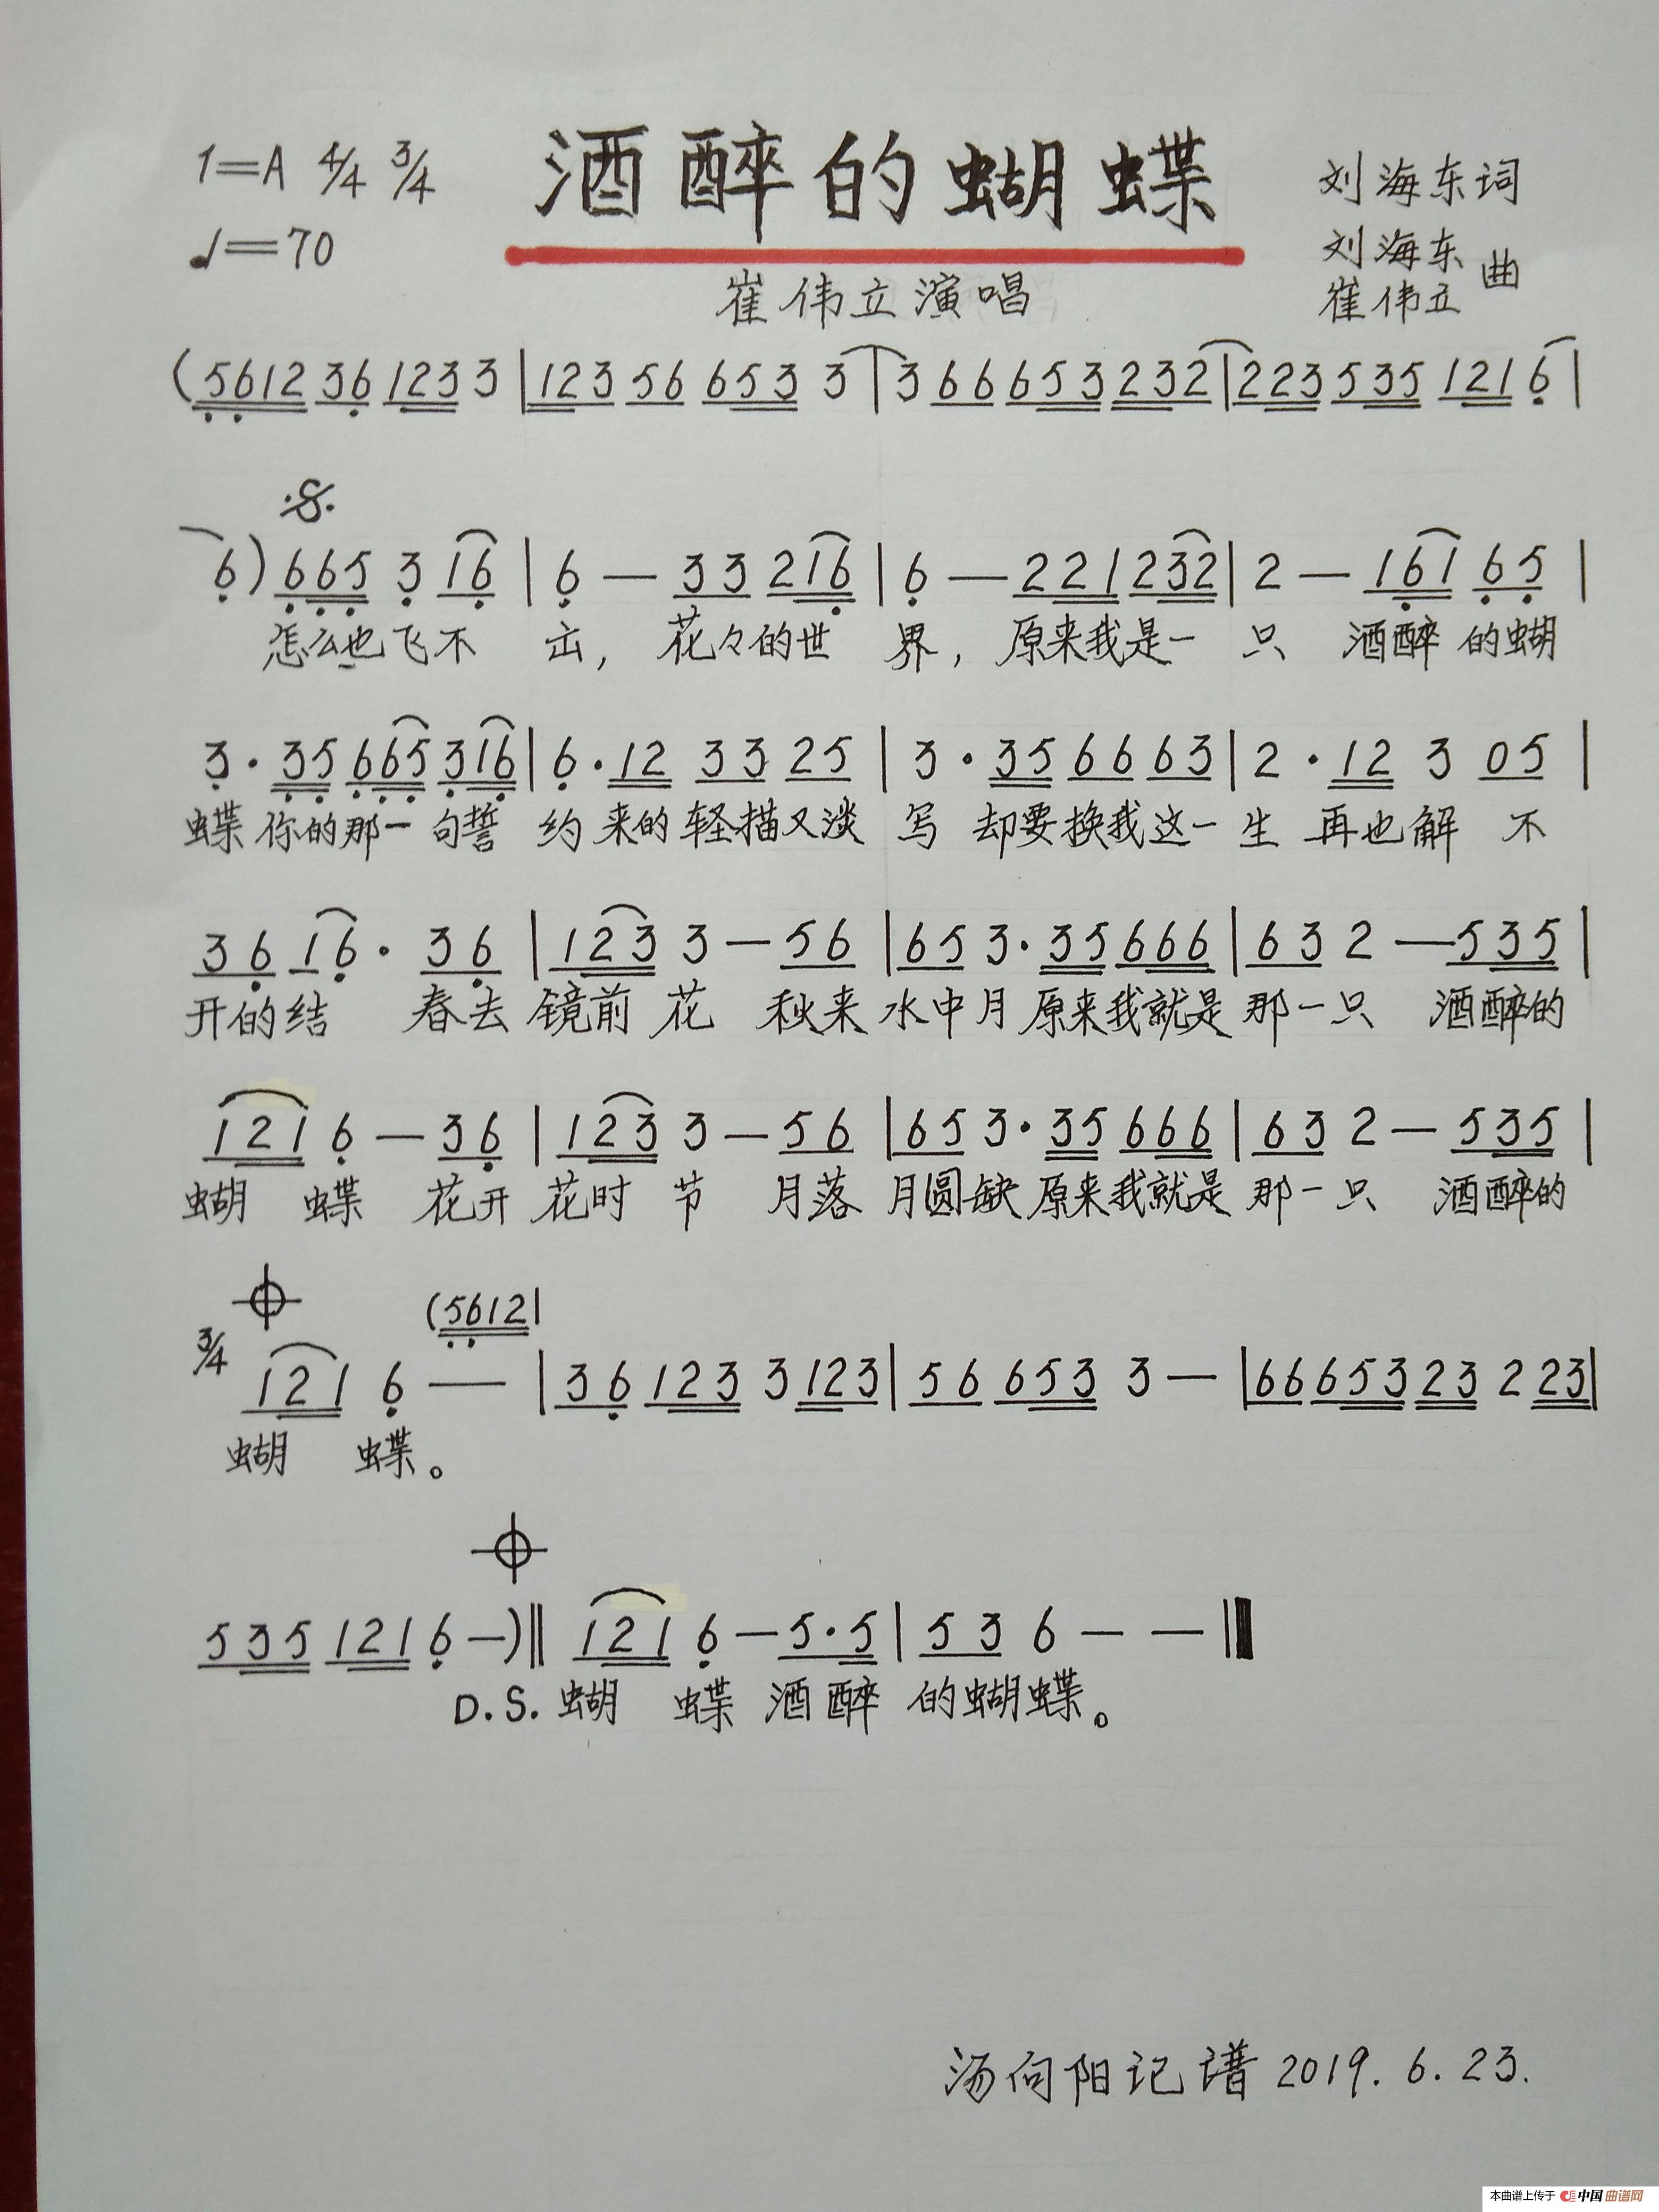 1=A 4/4 3/4 酒醉的蝴蝶 刘海东词
♩=70 刘海东 曲
崔伟立演唱 崔伟立
(5612 36 1233 3 | 123 56 653 3 | 3 66 653 232 | 223 535 121 6 |
𝄋
6) 665 3 16 | 6 — 33 216 | 6 — 221 232 | 2 — 161 65 |
怎么也飞不 出, 花々的世 界, 原来我是一 只 酒醉 的蝴
3· 35 665 316 | 6· 12 33 25 | 3· 35 66 63 | 2· 12 3 05 |
蝶 你的那一 句誓 约 来的轻描又淡 写 却要换我这一 生 再也解 不
36 16· 36 | 123 3 — 56 | 65 3· 35 666 | 63 2 — 535 |
开的结 春去 镜前 花 秋来 水中月 原来我就是 那一只 酒醉的
121 6 — 36 | 123 3 — 56 | 65 3· 35 666 | 63 2 — 535 |
蝴 蝶 花开 花时 节 月落 月圆缺 原来我就是 那一只 酒醉的
(5612 |
3/4 121 6 — — | 36 123 3 123 | 56 653 3 — | 66 653 23 2 23 |
蝴 蝶。
535 121 6 —) ‖ 121 6 — 5·5 | 53 6 — — ‖
D.S. 蝴 蝶 酒醉 的蝴蝶。
汤向阳记谱 2019.6.23.
本曲谱上传于 中国曲谱网